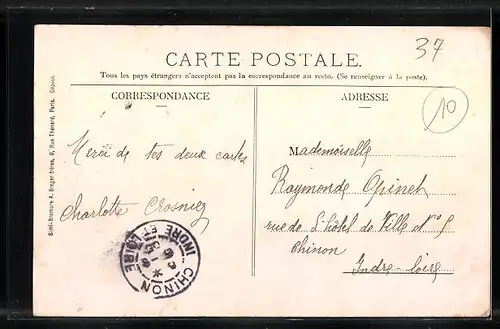 37
CARTE POSTALE.
Tous les pays étrangers n'acceptent pas la correspondance au recto. (Se renseigner à la poste).
CORRESPONDANCE
ADRESSE
10
Merci de tes deux cartes
Charlotte
Mademoiselle
Raymonde Opinet
rue de l'hôtel de Ville N°
Chinon
Indre-Loire
CHINON
INDRE ET LOIRE
Simi-Bromure A. Breger frères, 9, Rue Thénard, Paris. Déposé.